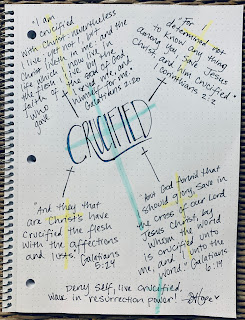 "I am
crucified
with Christ: nevertheless
I live; yet not I, but
Christ liveth in me: and the
life which I now live in
the flesh I live by the
faith of the Son of God
who loved me, and
gave himself
for me."
Galatians 2:20
"For I
determined not
to know any thing
among you, save Jesus
Christ, and him crucified."
1 Corinthians 2:2
CRUCIFIED
"And they that
are Christ's have
crucified the flesh
with the affections
and lusts." Galatians
5:24
"But God forbid that
I should glory, save in
the cross of our Lord
Jesus Christ, by
whom the world
is crucified unto
me, and I unto the
world." Galatians
6:14
Deny self, live crucified,
walk in resurrection power!